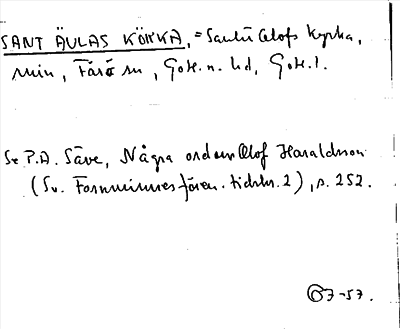 SANT ÄULAS KÖRKA, = Sankt Olofs kyrka,
ruin, Fårö sn, Gotl. n. hd, Gotl. l.
Se P.A. Säve, Några ord om Olof Haraldsson
(Sv. Fornminnesfören. tidskr. 2), s. 252.
7-57.